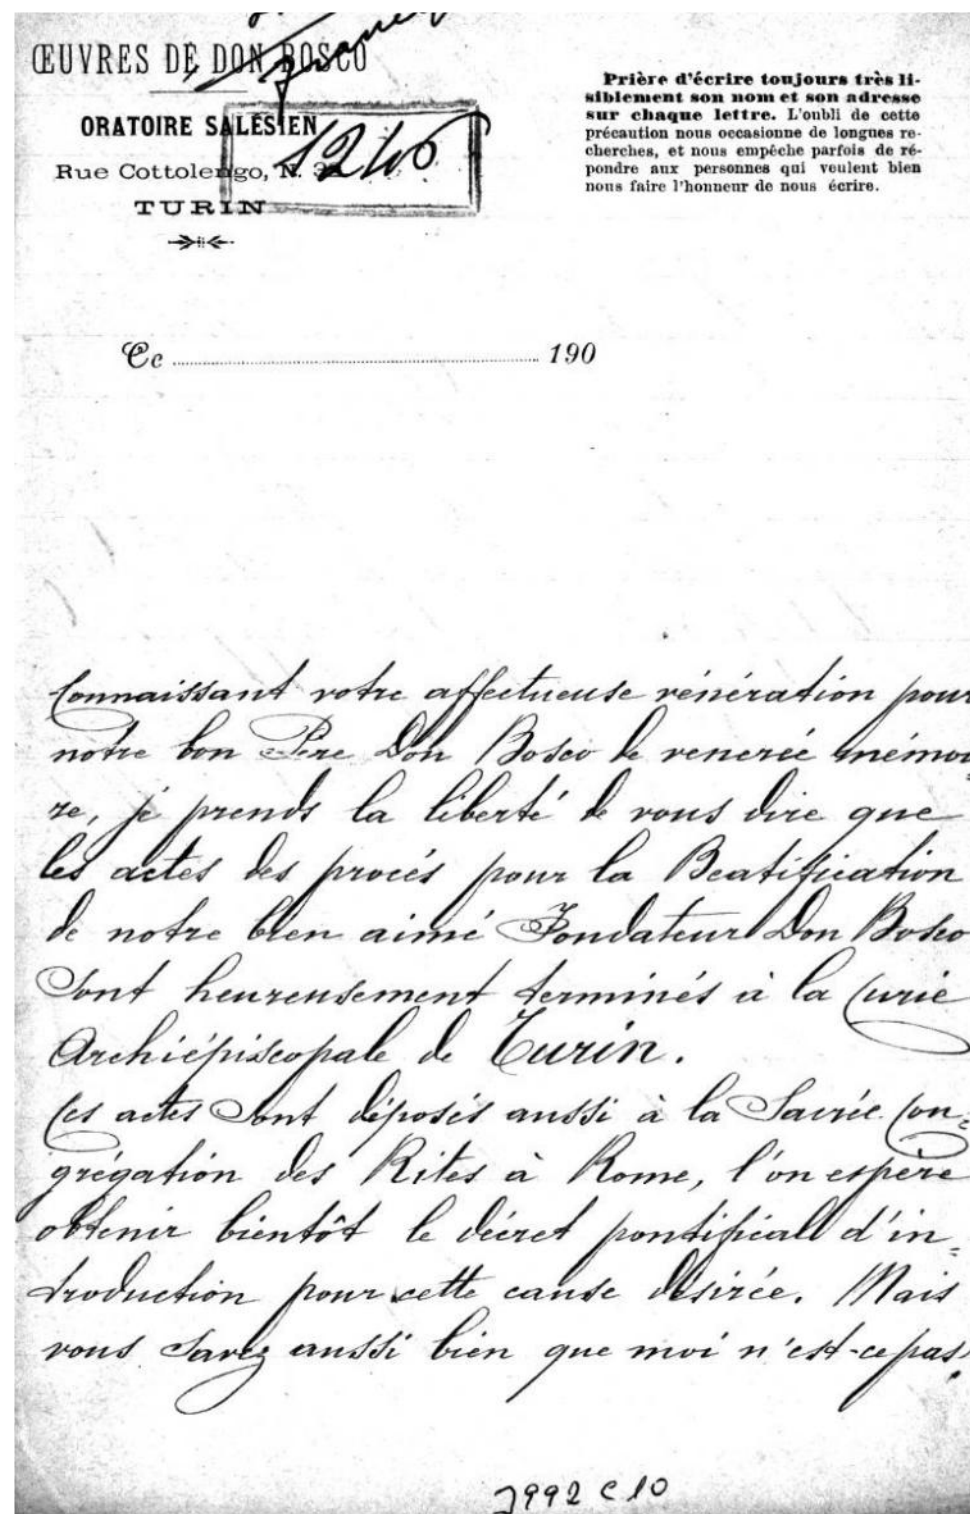 ŒUVRES DE DON BOSCO
ORATOIRE SALÉSIEN
Rue Cottolengo, N. 32
TURIN
1246
Prière d'écrire toujours très li-
siblement son nom et son adresse
sur chaque lettre. L'oubli de cette
précaution nous occasionne de longues re-
cherches, et nous empêche parfois de ré-
pondre aux personnes qui veulent bien
nous faire l'honneur de nous écrire.
Ce 190
Connaissant votre affectueuse vénération pour
notre bon Père Don Bosco de venerée mémoi-
re, je prends la liberté de vous dire que
les actes des procés pour la Beatification
de notre bien aimé Fondateur Don Bosco
Sont heureusement terminés à la Curie
Archiépiscopale de Turin.
Ces actes Sont déposés aussi à la Sacrée Con=
grégation des Rites à Rome, l'on espère
obtenir bientôt le décret pontifical d'in=
troduction pour cette cause désirée. Mais
vous Savez aussi bien que moi n'est-ce pas,
3992 C 10